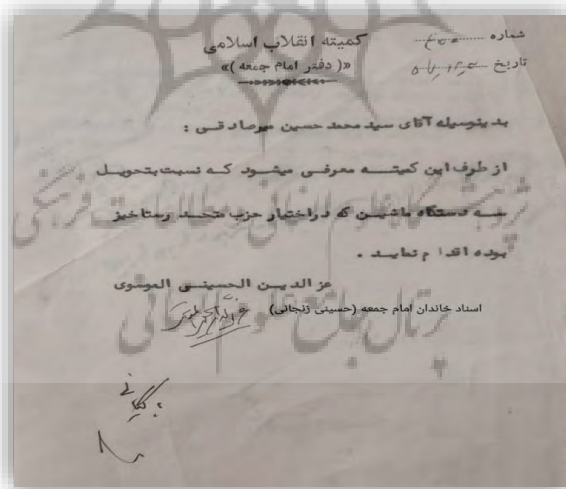 کمیته انقلاب اسلامی
«( دفتر امام جمعه )»
شماره
تاریخ
بدینوسیله آقای سید محمد حسین میرصادقی :
از طرف این کمیته معرفی میشود که نسبت بتحویل
سه دستگاه ماشین که در اختیار حزب منحله رستاخیز
بوده اقدام نمایند .
عز الدین الحسینی الموسوی
اسناد خاندان امام جمعه (حسینی زنجانی)
پژوهشگاه علوم انسانی و مطالعات فرهنگی
پرتال جامع علوم انسانی